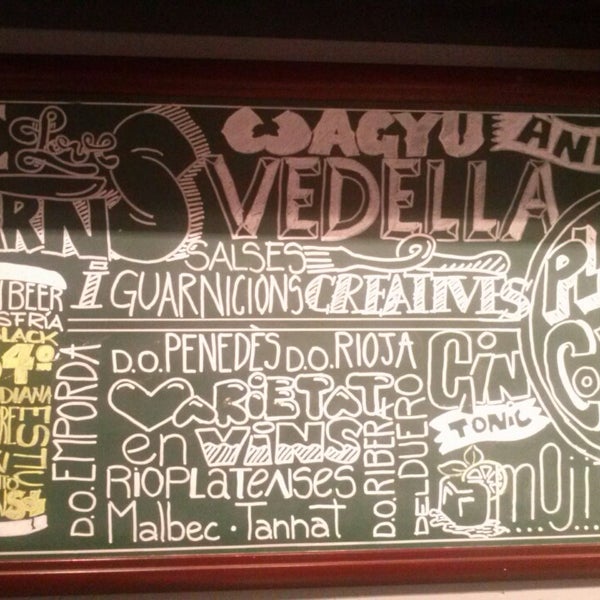 Love
WAGYU
VEDELLA
SALSES
I GUARNICIONS CREATIVES
BEER
BLACK
D.O. EMPORDA
D.O. PENEDÈS D.O. RIOJA
VARIETAT
en VINS
RIOPLATENSES
Malbec · Tannat
D.O. RIBERA
DEL DUERO
GIN
TONIC